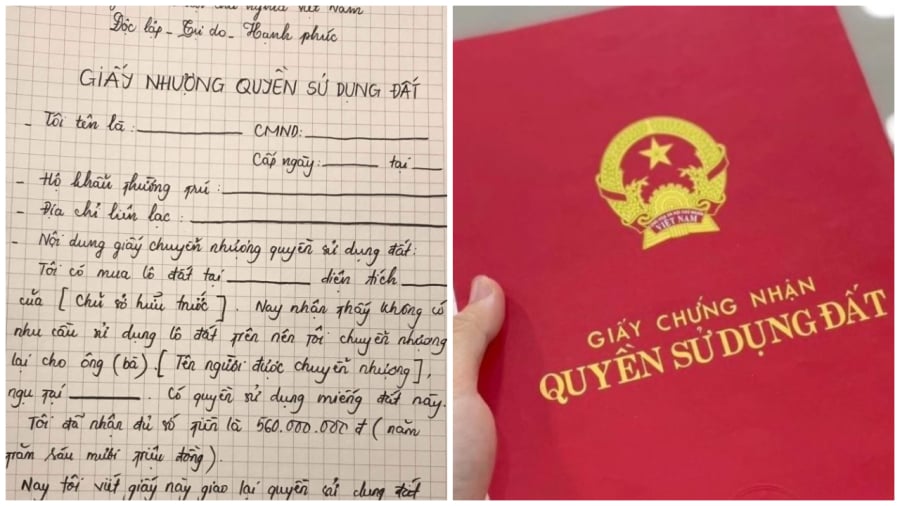 chủ nghĩa việt nam
Độc lập - Tự do - Hạnh phúc
GIẤY NHƯỢNG QUYỀN SỬ DỤNG ĐẤT
- Tôi tên là : ________ CMND: ________
Cấp ngày: ____ tại __
- Hộ khẩu thường trú : ________
- Địa chỉ liên lạc : ________
- Nội dung giấy chuyển nhượng quyền sử dụng đất:
Tôi có mua lô đất tại ______ diện tích ____
của [ Chủ sở hữu trước ]. Nay nhận thấy không có
nhu cầu sử dụng lô đất trên nên tôi chuyển nhượng
lại cho ông (bà) [ Tên người được chuyển nhượng ],
ngụ tại ______ . Có quyền sử dụng miếng đất này.
Tôi đã nhận đủ số tiền là 560.000.000 đ ( năm
trăm sáu mươi triệu đồng ).
Nay tôi viết giấy này giao lại quyền sử dụng đất
VIỆT NAM
GIẤY CHỨNG NHẬN
QUYỀN SỬ DỤNG ĐẤT